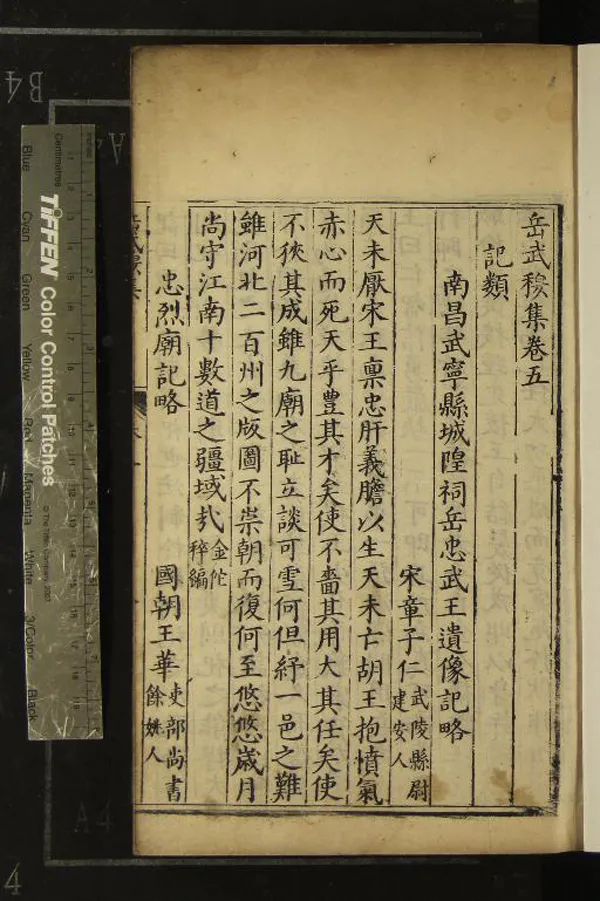 岳武穆集卷五
記類
南昌武寧縣城隍祠岳忠武王遺像記略
宋章子仁 武陵縣尉 建安人
天未厭宋王稟忠肝義膽以生天未亡胡王抱憤氣
赤心而死天乎豊其才矣使不嗇其用大其任矣使
不狹其成雖九廟之耻立談可雪何但紓一邑之難
雖河北二百州之版圖不崇朝而復何至悠悠歲月
尚守江南十數道之疆域㢤 金佗 稡編
忠烈廟記略
國朝王華 吏部尚書 餘姚人
B4
A4
A4
4
Inches
Centimetres
TIFFEN Color Control Patches
© The Tiffen Company, 2007
Blue
Cyan
Green
Yellow
Red
Magenta
White
3/Color
Black